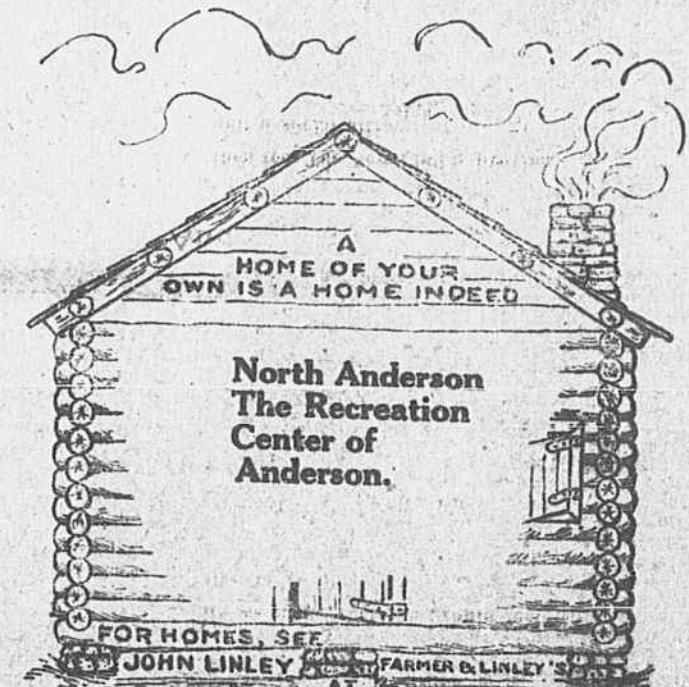 A
HOME OF YOUR
OWN IS A HOME INDEED
North Anderson
The Recreation
Center of
Anderson.
FOR HOMES, SEE
JOHN LINLEY
AT
FARMER & LINLEY'S